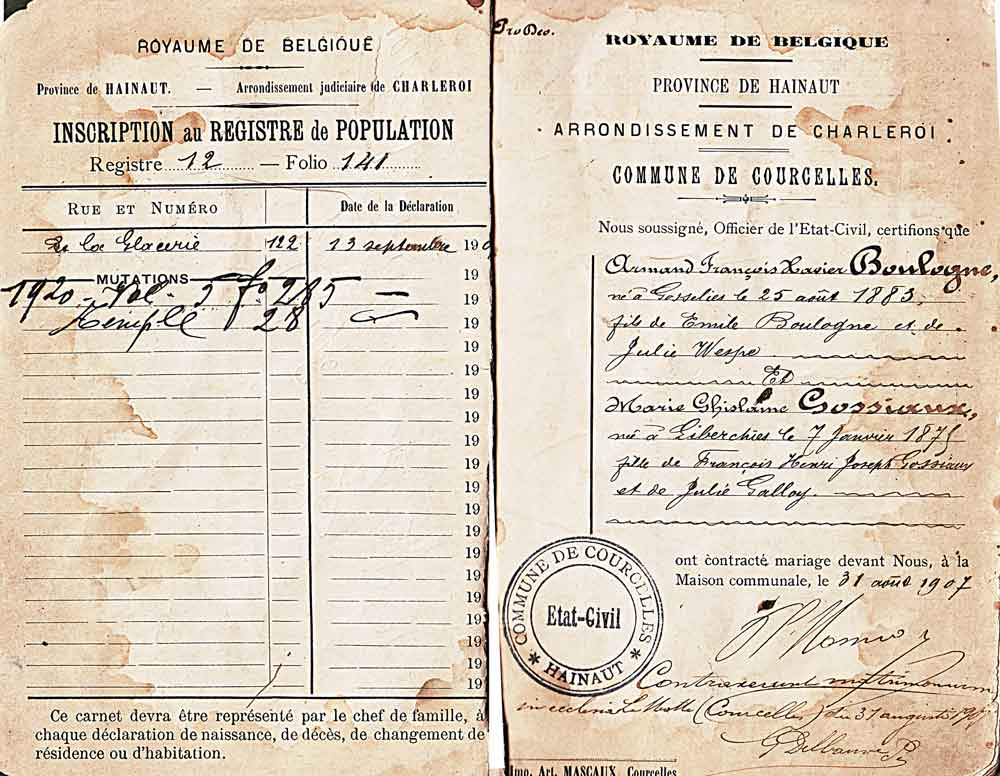 ROYAUME DE BELGIQUE
Province de HAINAUT. — Arrondissement judiciaire de CHARLEROI
INSCRIPTION au REGISTRE de POPULATION
Registre 12 — Folio 141
RUE ET NUMÉRO Date de la Déclaration
De la Glacerie 122 13 septembre 190
MUTATIONS 19
1920 Vol. 5 fo 285 — 19
28 19
19
19
19
19
19
19
19
19
19
19
19
19
19
19
19
19
Ce carnet devra être représenté par le chef de famille, à
chaque déclaration de naissance, de décès, de changement de
résidence ou d'habitation.
ROYAUME DE BELGIQUE
PROVINCE DE HAINAUT
ARRONDISSEMENT DE CHARLEROI
COMMUNE DE COURCELLES.
Nous soussigné, Officier de l'Etat-Civil, certifions que
Armand François Xavier Boulogne,
né à Gosselies le 25 août 1883,
fils de Emile Boulogne et de
Julie Wespe
Et
Marie Ghislaine Gossiaux,
né à Liberchies le 7 Janvier 1875
fille de François Henri Joseph Gossiaux
et de Julie Galloy.
ont contracté mariage devant Nous, à la
Maison communale, le 31 août 1907
COMMUNE DE COURCELLES
Etat-Civil
* HAINAUT *
Contraxerunt matrimonium
in ecclesia La Motte (Courcelles) die 31 augusti 1907
Imp. Art. MASCAUX, Courcelles